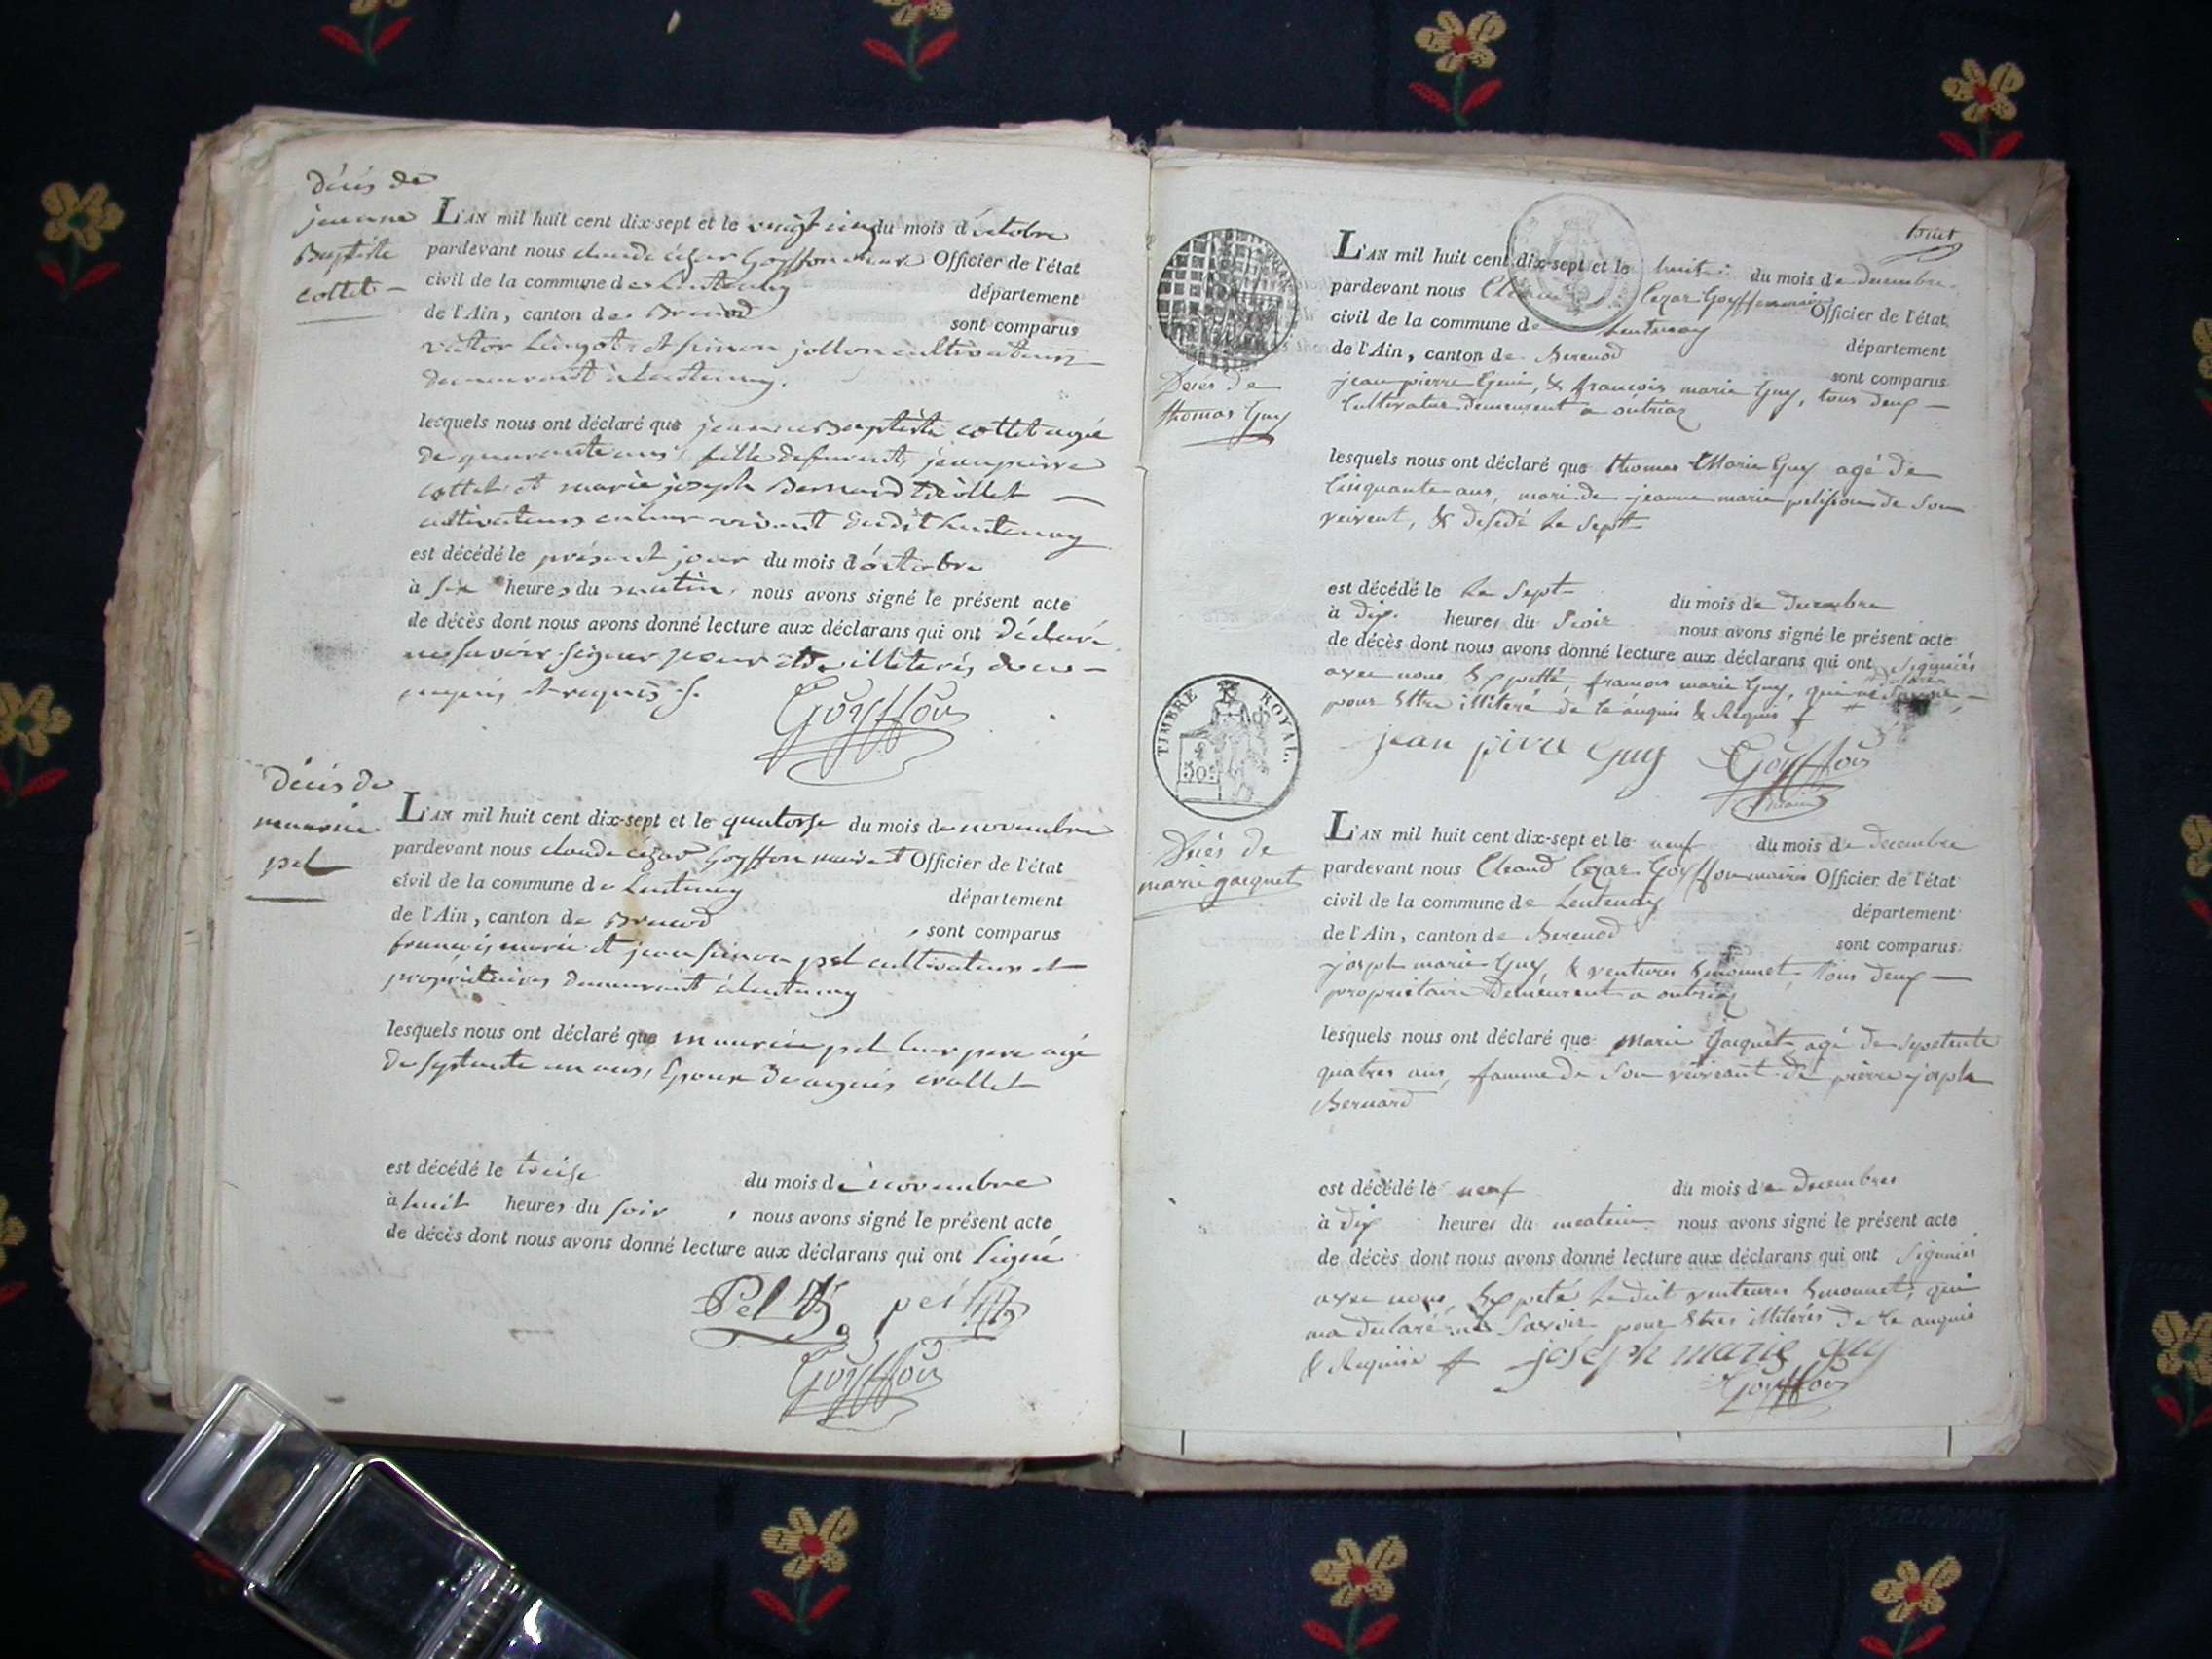 décès de
jeanne
Baptiste
collet
L'AN mil huit cent dix-sept et le vingt cinq du mois d'octobre
pardevant nous claude césar Goyffon maire Officier de l'état
civil de la commune de Lantenay
département
de l'Ain, canton de Brenod
sont comparus
victor Lingot et simon jollon cultivateurs
demeurant à lantenay.
lesquels nous ont déclaré que jeanne Baptiste collet agée
de quarante ans, fille défunts, jean pierre
collet et marie joseph Bernard Collet
cultivateurs vivant dudit lantenay
est décédé le présent jour du mois d'octobre
à six heures du matin, nous avons signé le présent acte
de décès dont nous avons donné lecture aux déclarans qui ont déclaré
ne savoir signer pour etre illiterés de ce
enquis et requis
Goyffon
décès de
maurice
pel
L'AN mil huit cent dix-sept et le quatorse du mois de novembre
pardevant nous claude cezar Goyffon maire Officier de l'état
civil de la commune de Lantenay
département
de l'Ain, canton de Brenod
, sont comparus
francois marie et jean simon pel cultivateurs et
propriétaires demeurant à lantenay
lesquels nous ont déclaré que maurice pel leur pere agé
de septante un ans, Epoux de agnès collet
est décédé le treise du mois de novembre
à huit heures du soir, nous avons signé le présent acte
de décès dont nous avons donné lecture aux déclarans qui ont Signé
Pel pel
Goyffon
huit
L'AN mil huit cent dix-sept et le huit du mois de decembre
pardevant nous Cleaud Cezar Goyffon maire Officier de l'état
civil de la commune de Lentenay
département
de l'Ain, canton de Berenod
sont comparus
Deces de
thomas Guy
jean pierre Guy, & francois marie Guy, tous deux
Cultivateur demeurent a outriaz
lesquels nous ont déclaré que thomas Marie Guy agé de
Cinquante ans, mari de jeanne marie pelisson de son
veivent, & desedé le sept
est décédé le le sept du mois de decembre
à dix heures du Soir nous avons signé le présent acte
de décès dont nous avons donné lecture aux déclarans qui ont signiés
avec nous Exsepetté francois marie Guy, qui
pour Ettre illiteré de Ce anquis & Requis
TIMBRE ROYAL.
50 c
jean pierre Guy Goyffon
maire
Décés de
marie gacquet
L'AN mil huit cent dix-sept et le neuf du mois de decembre
pardevant nous Cleaud Cezar Goyffon maire Officier de l'état
civil de la commune de Lentenay
département
de l'Ain, canton de Berenod
sont comparus
joseph marie Guy, & ventures Emonnet, tous deux
proprietaire demeurent a outriaz
lesquels nous ont déclaré que Marie Gacquet agé de sepetente
quatres ans, famme de Son veiveant de pierre joseph
Bernard
est décédé le neuf du mois de decembres
à dix heures du meatin nous avons signé le présent acte
de décès dont nous avons donné lecture aux déclarans qui ont signiés
avec nous, Exsepeté Ledit ventures Emonnet, qui
ma declaré ne Savoir pour Etres illiterés de Ce anquis
& Requise joseph marie guy
Goyffon